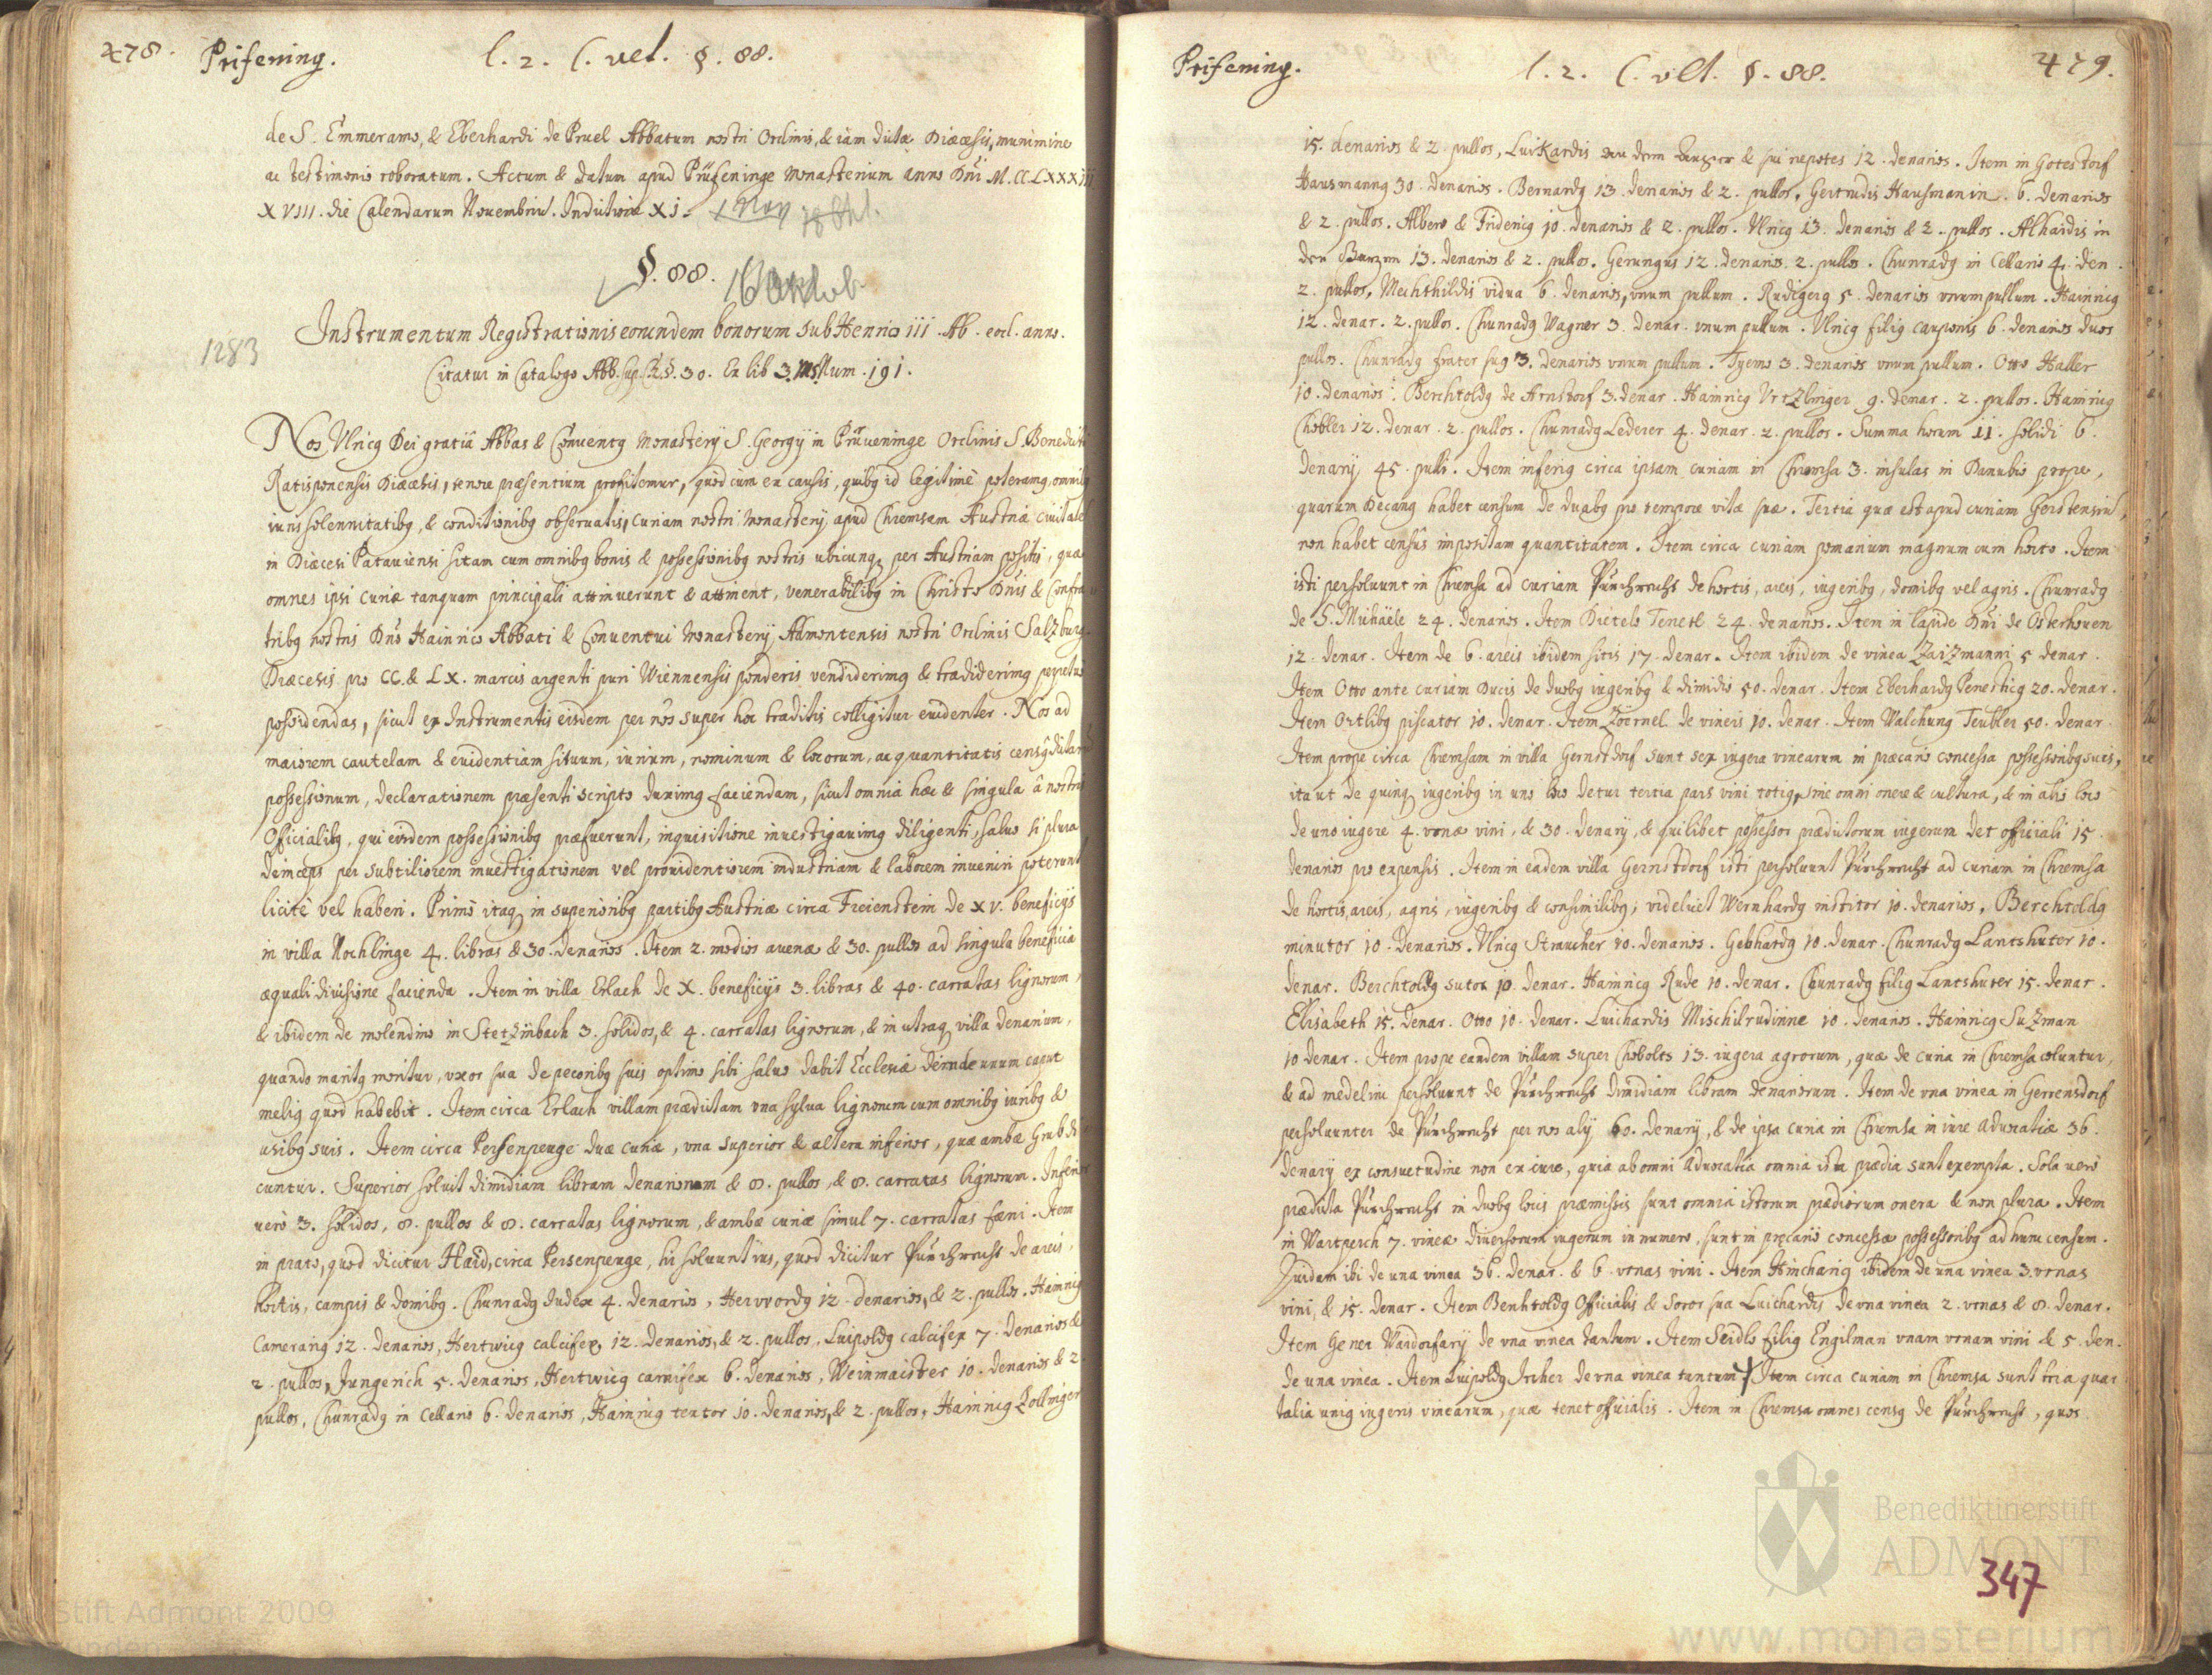 478. Prifening. l. 2. C. vet. §. 88.
de S. Emmeramo, & Eberhardi de Pruel Abbatum nostri Ordinis, & iam dictæ Diæcesis, munimine
ac testimonio roboratum. Actum & datum apud Prüfeninge Monasterium anno Dni M.CC.LXXXIII
XVIII. die Calendarum Nouembrium. Indictione XI.
§. 88.
16 Octob.
Instrumentum Registrationis eorundem bonorum sub Henrico III. Ab. eod. anno.
1283
Citatur in Catalogo Abb. sup. §. 30. Ex lib 3. Mssum. 191.
Nos Vlricg Dei gratiâ Abbas & Conuentg Monasterij S. Georgij in Prüueninge Ordinis S. Benedicti
Ratisponensis Diæcesis, tenore præsentium profitemur, quod cum ex causis, quibg id legitimè poteramg, omnibg
iuris solennitatibg, & conditionibg obseruatis, Curiam nostri Monasterij apud Chremsam Austriæ ciuitate
in Diæcesi Patauiensi sitam cum omnibg bonis & possessionibg nostris ubicunq per Austriam positis, quæ
omnes ipsi Curiæ tanquam principali attinuerunt & attinent, venerabilibg in Christo Dnis & Confra
tribg nostris Dno Hainrico Abbati & Conuentui Monasterij Admontensis nostri Ordinis Salzburg.
Diæcesis pro CC. & LX. marcis argenti puri Wiennensis ponderis vendiderimg & tradiderimg perpetuo
possidendas, sicut ex Instrumentis eisdem per nos super hoc traditis colligitur euidenter. Nos ad
maiorem cautelam & euidentiam situum, iurium, nominum & locorum, ac quantitatis censg dictarum
possessionum, declarationem præsenti scripto duximg faciendam, sicut omnia hæc & singula à nostris
Officialibg, qui eisdem possessionibg præfuerunt, inquisitione inuestigauimg diligenti, saluo si plura
deinceps per subtiliorem inuestigationem vel prouidentiorem industriam & laborem inueniri poterunt
licitè vel haberi. Primò itaq in superioribg partibg Austriæ circa Freienstein de XV. beneficijs
in villa Nochlinge 4. libras & 30. denarios. Item 2. modios auenæ & 30. pullos ad singula beneficia
æquali diuisione facienda. Item in villa Erlach de X. beneficijs 3. libras & 40. carratas lignorum,
& ibidem de molendino in Stetzinbach 3. solidos, & 4. carratas lignorum, & in utraq villa denarium,
quando maritg moritur, vxor sua de pecoribg suis optimo sibi saluo dabit Ecclesiæ deinde unum caput
melig quod habebit. Item circa Erlach villam prædictam vna sylua lignorum cum omnibg iuribg &
usibg suis. Item circa Persenpeuge duæ curiæ, vna superior & altera inferior, quæ ambæ Grub di
cuntur. Superior soluit dimidiam libram denariorum & 8. pullos, & 8. carratas lignorum. Inferior
uerò 3. solidos, 8. pullos & 8. carratas lignorum, & ambæ curiæ simul 7. carratas fæni. Item
in prato, quod dicitur Haid, circa Persenpeuge, hi soluunt ius, quod dicitur Purchrecht de areis,
hortis, campis & domibg. Chunradg Iudex 4. denarios, Hervvordg 12. denarios, & 2. pullos, Hainricg
Camerarig 12. denarios, Hertwicg calcifex, 12. denarios, & 2. pullos, Luipoldg calcifex 7. denarios &
2. pullos, Jungerich 5. denarios, Hertwicg carnifex 6. denarios, Weinmaister 10. denarios & 2.
pullos, Chunradg in Cellario 6. denarios, Hainricg textor 10. denarios, & 2. pullos, Hainricg Zollinger
Prifening. l. 2. C. vet. §. 88. 479.
15. denarios & 2. pullos, Luikardis & sui nepotes 12. denarios. Item in Gotestorf
Hausmanng 30. denarios. Bernardg 13. denarios & 2. pullos, Gertrudis Hausmanin. 6. denarios
& 2. pullos. Albero & Fridericg 10. denarios & 2. pullos. Vlricg 13. denarios & 2. pullos. Alhardis in
13. denarios & 2. pullos. Gerungus 12. denarios. 2. pullos. Chunradg in Cellario 4. den.
2. pullos, Mechthildis vidua 6. denarios, vnum pullum. Rudigerg 5. denarios vnum pullum. Hainricg
12. denar. 2. pullos. Chunradg Wagner 3. denar. vnum pullum. Vlricg filig cauponis 6. denarios duos
pullos. Chunradg frater sug 3. denarios vnum pullum. Tyemo 3. denarios vnum pullum. Otto Haller
10. denarios. Berchtoldg de Arnstorf 3. denar. Hainricg Vrtzlinger 9. denar. 2. pullos. Hainricg
Chobler 12. denar. 2. pullos. Chunradg Lederer 4. denar. 2. pullos. Summa horum 11. solidi 6.
denarij 45. pulli. Item inferig circa ipsam curiam in Chremsa 3. insulas in Danubio prope,
quarum Decang habet censum de duabg pro tempore vitæ suæ. Tertia quæ est apud curiam Gerstensin,
non habet censûs impositam quantitatem. Item circa curiam pomarium magnum cum horto. Item
isti persoluunt in Chremsa ad curiam Purchrecht de hortis, areis, iugeribg, domibg vel agris. Chunradg
de S. Michaele 24. denarios. Item Dietelo Tenetl 24. denarios. Item in lapide Dni de Osterhouen
12. denar. Item de 6. areis ibidem sitis 17. denar. Item ibidem de vinea Zaizmanni 5 denar.
Item Otto ante curiam Ducis de duobg iugeribg & dimidio 50. denar. Item Eberhardg Penesticg 20. denar.
Item Ortlibg piscator 10. denar. Item Zöernel de vineis 10. denar. Item Walchung Teubler 50. denar.
Item prope circa Chremsam in villa Gernstdorf sunt sex iugera vinearum in precario concessa possessoribg suis,
ita ut de quinq iugeribg in uno loco detur tertia pars vini totig, sine omni onere & cultura, & in alio loco
de uno iugere 4. vrnæ vini, & 30. denarij, & quilibet possessor prædictorum iugerum det officiali 15.
denarios pro expensis. Item in eadem villa Gernstdorf isti persoluunt Purchrecht ad curiam in Chremsa
de hortis, areis, agris, iugeribg & consimilibg, videlicet Wernhardg institor 10. denarios, Berchtoldg
minutor 10. denarios. Vlricg Straucher 10. denarios. Gebhardg 10. denar. Chunradg Lantshuter 10.
denar. Berchtoldg sutor 10. denar. Hainricg Rude 10. denar. Chunradg filig Lantshuter 15. denar.
Elisabeth 15. denar. Otto 10. denar. Luichardis Mischilrudinne 10. denarios. Hainricg Suzman
10 denar. Item prope eandem villam super Chobolts 13. iugera agrorum, quæ de curia in Chremsa coluntur,
& ad medelini persoluunt de Purchrecht dimidiam libram denariorum. Item de vna vinea in Gerrensdorf
persoluuntur de Purchrecht per nos alij 60. denarij, & de ipsa curia in Chremsa in iure aduocatiæ 36.
denarij ex consuetudine non ex iure, quia ab omni Aduocatia omnia ista prædia sunt exempta. Sola uerò
prædicta Purchrecht in duobg locis præmissis sunt omnia istorum prædiorum onera & non plura. Item
in Wartperch 7. vineæ diuersorum iugerum in numero, sunt in precario concessæ possessoribg ad hunc censum.
Quidam ibi de una vinea 36. denar. & 6. vrnas vini. Item Hincharig ibidem de una vinea 3. vrnas
vini, & 15. denar. Item Benhtoldg Officialis & soror sua Luichardis de vna vinea 2. vrnas & 8. denar.
Item Gener Wardorfarij de vna vinea tantum. Item Seidlo filig Engilman vnam vrnam vini & 5. den.
de una vinea. Item Luipoldg Ircher de vna vinea tantum. Item circa curiam in Chremsa sunt tria quar
talia unig iugeris vinearum, quæ tenet officialis. Item in Chremsa omnes censg de Purchrecht, quos
347
Benediktinerstift
ADMONT
Stift Admont 2009
www.monasterium